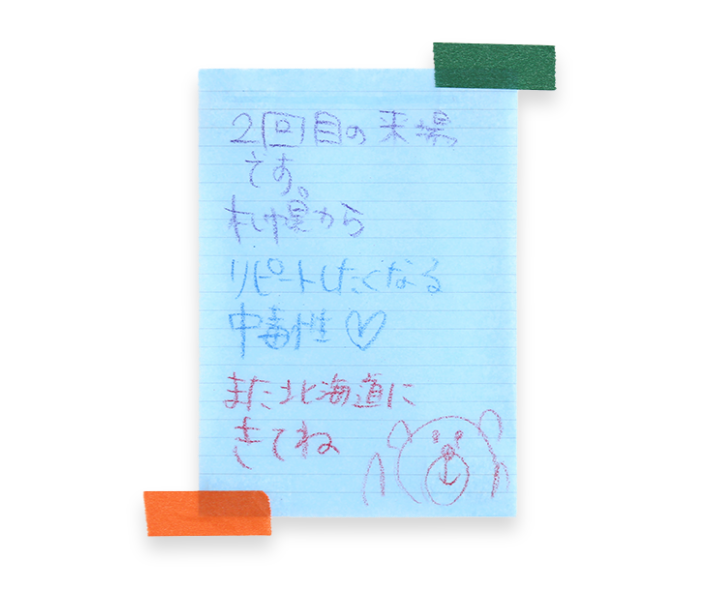 2回目の来場
です。
札幌から
リピートしたくなる
中毒性♡
また北海道に
きてね